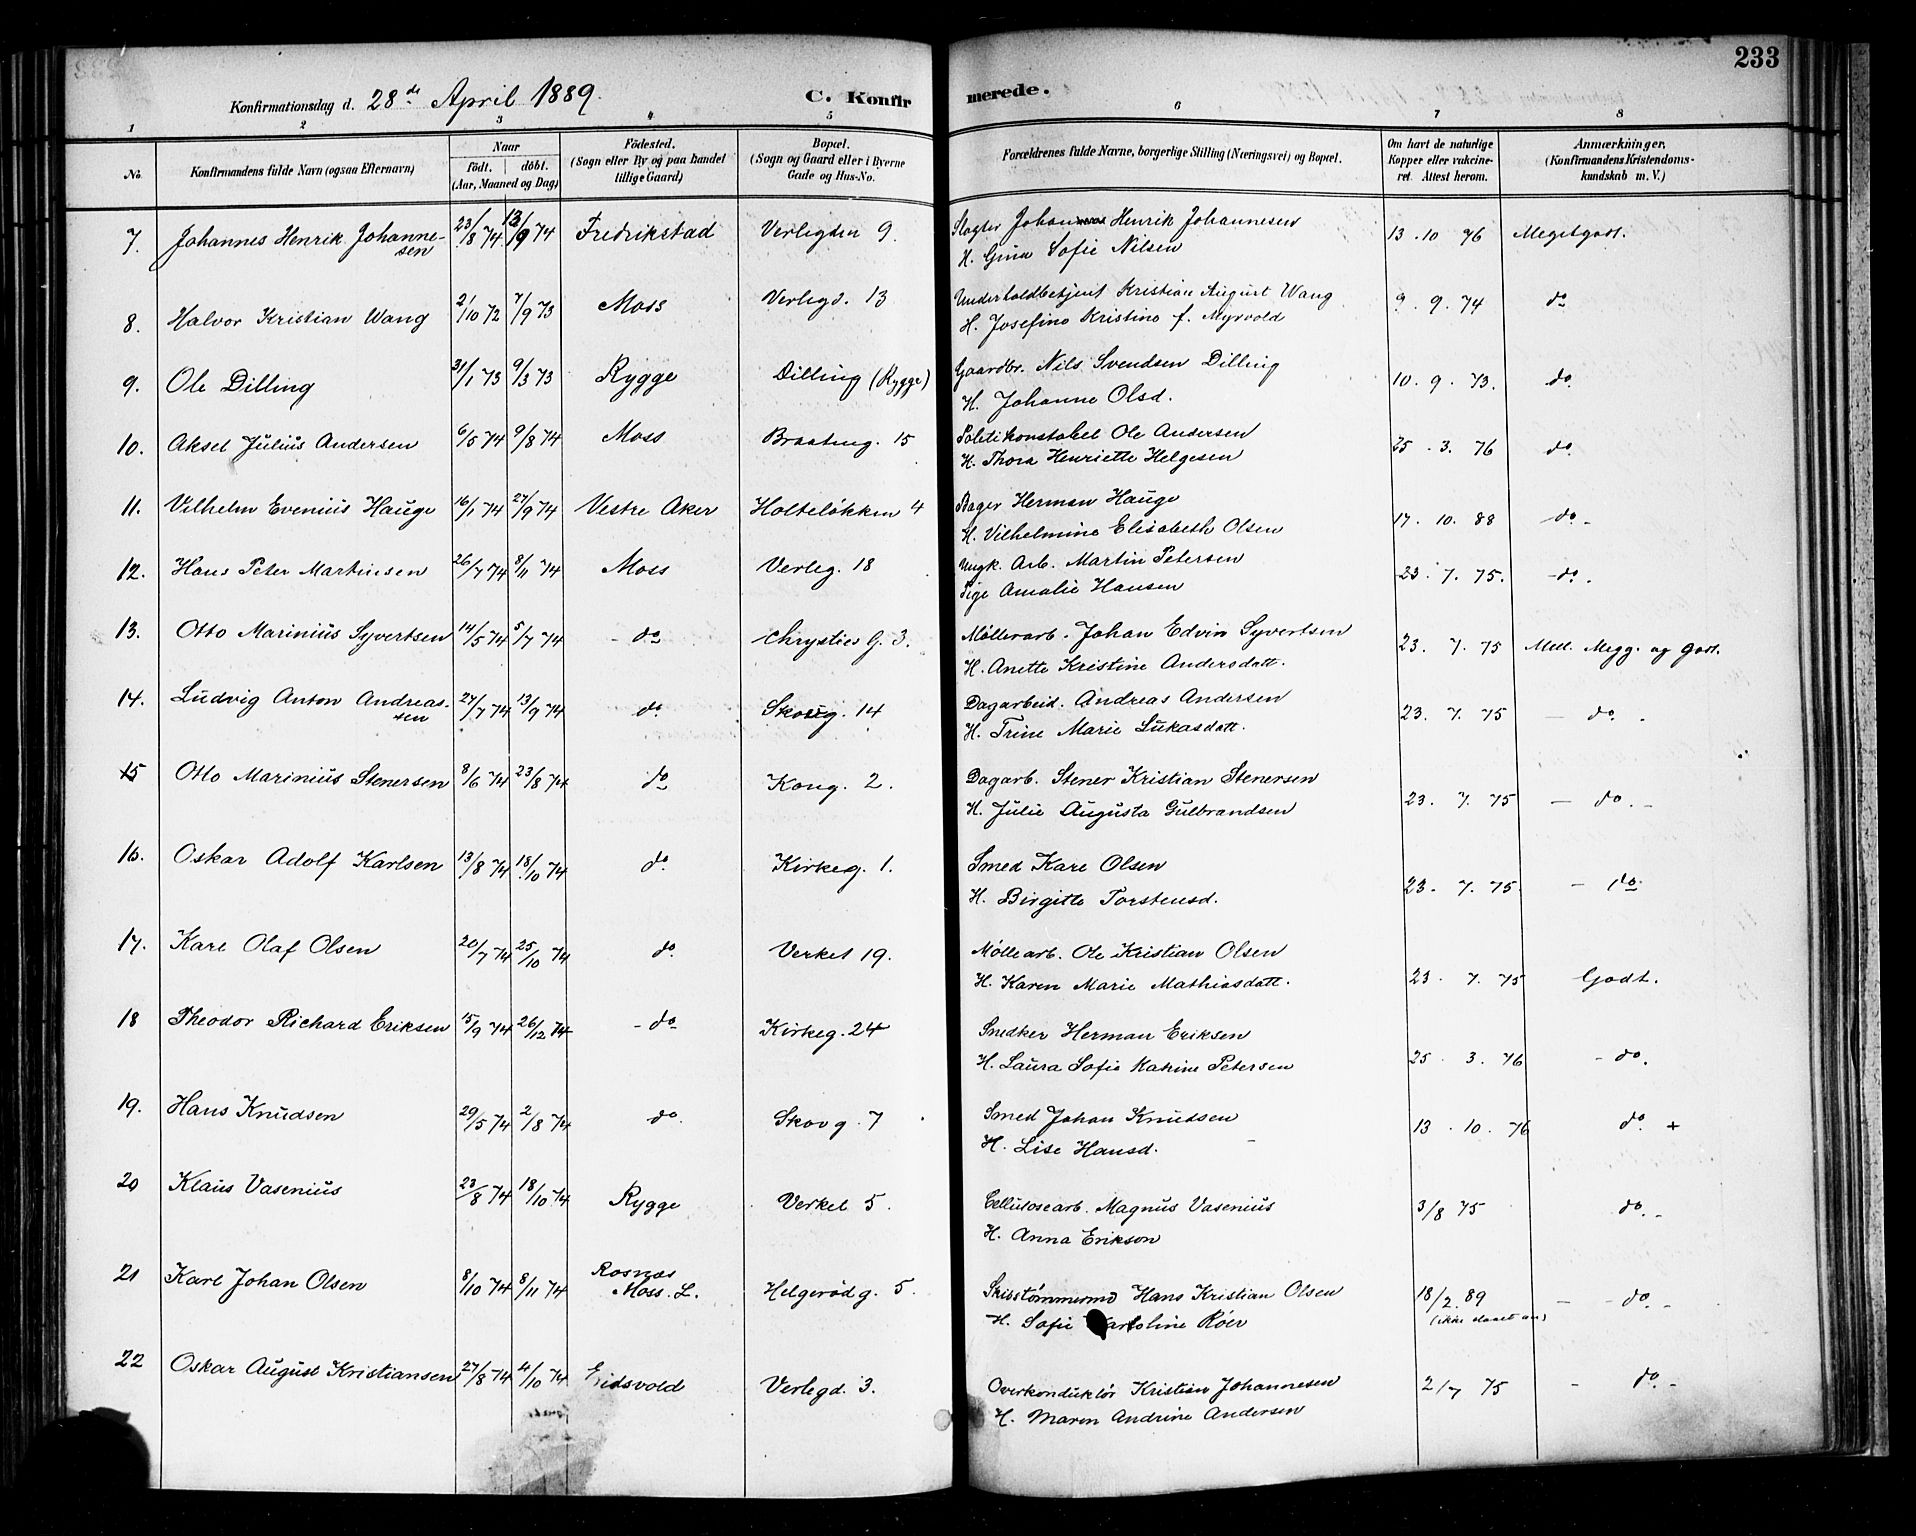 233
Konfirmationsdag d. 28de April 1889. C. Konfirmerede.
1 2 3 4 5 6 7 8
No. Konfirmandens fulde Navn (ogsaa Efternavn) Naar födt. döbt. (Aar, Maaned og Dag) Födested. (Sogn eller By og paa Landet tillige Gaard) Bopæl. (Sogn og Gaard eller i Byerne Gade og Hus-No. Forældrenes fulde Navne, borgerlige Stilling (Næringsvei) og Bopæl. Om havt de naturlige Kopper eller vakcineret. Attest herom. Anmærkninger, (Konfirmandens Kristendomskundskab m. V.)
7. Johannes Henrik Johannesen 23/8 74 13/9 74 Fredrikstad Verlegden 9. Slagter Johan Henrik Johannesen 13. 10 76 Megetgodt.
H. Gina Sofie Nilsen
8. Halvor Kristian Wang 2/10 72 7/9 73 Moss Verlegd. 13 Underholdbetjent Kristian August Wang 9. 9. 74 do
H. Josefine Kristine f. Myrvold
9. Ole Dilling 31/1 73 9/3 73 Rygge Dilling (Rygge) Gaardbr. Nils Svendsen Dilling 10. 9. 73. do.
H. Johanne Olsd.
10. Aksel Julius Andersen 6/5 74 9/8 74 Moss Braateng. 15 Politikonstabel Ole Andersen 25. 3. 76 do.
H. Thora Henriette Helgesen
11. Vilhelm Evenius Hauge 16/1 74 27/9 74 Vestre Aker Holteløkken 4 Bager Herman Hauge 17. 10. 88 do. -
H. Vilhelmine Elisabeth Olsen
12. Hans Peter Martinsen 26/7 74 8/11 74 Moss Verleg. 18 Ungk. Arb. Martin Petersen 23. 7. 75. -do.
Pige Amalie Hansen
13. Otto Marinius Syvertsen 14/5 74 5/7 74 - do Chrysties G. 3. Møllerarb. Johan Edvin Syvertsen 23. 7. 75 Mell. Megg. og Godt.
H. Anette Kristine Andersdatt.
14. Ludvig Anton Andreassen 27/7 74 13/9 74 do. Skovg. 14 Dagarbeid. Andreas Andersen 23. 7. 75 - do. -
H. Trine Marie Lukasdatt.
15 Otto Marinius Stenersen 8/6 74 23/8 74 do Kong. 2. Dagarb. Stener Kristian Stenersen 23. 7. 75 - do. -
H. Julie Augusta Gulbrandsen
16. Oskar Adolf Karlsen 13/8 74 18/10 74 do. Kirkeg. 1. Smed Karl Olsen 23. 7. 75 - do.
H. Birgitte Torstensd.
17. Karl Olaf Olsen 20/7 74 25/10 74 do. Verket 19. Møllearb. Ole Kristian Olsen 23. 7. 75 Godt.
H. Karen Marie Mathiasdatt.
18 Theodor Richard Eriksen 15/9 74 26/12 74 - do Kirkeg. 24 Snedker Herman Eriksen 25. 3. 76 - do.
H. Laura Sofie Katrine Petersen
19. Hans Knudsen 29/5 74 2/8 74 do. Skovg. 7 Smed Johan Knudsen 13. 10. 76 do. +
H. Lise Hansd.
20 Klaus Vasenius 23/8 74 18/10 74 Rygge Verket 5. Cellulosearb. Magnus Vasenius 3/8 75 do. -
H. Anna Erikson
21 Karl Johan Olsen 8/10 74 8/11 74 Rosnæs Moss L. Helgerødg. 5. Skibstømmermd Hans Kristian Olsen 18/2. 89 - - do. -
H. Sofie Karoline Röer
22 Oskar August Kristiansen 27/8 74 4/10 74 Eidsvold Verlegd. 3. Overkonduktör Kristian Johannesen 2/7 75 - do. -
H. Maren Andrine Andersen